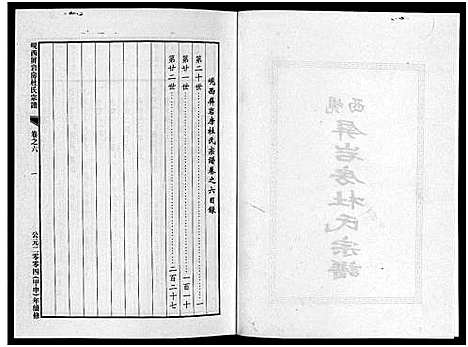 西峴
屏岩房杜氏宗譜
峴西屏岩房杜氏宗譜卷之六目錄
第二十世………………一
第廿一世………………一百一十
第廿二世………………二百二十七
峴西屏岩房杜氏宗譜
卷之六
一
公元二零零四(甲申)年續修